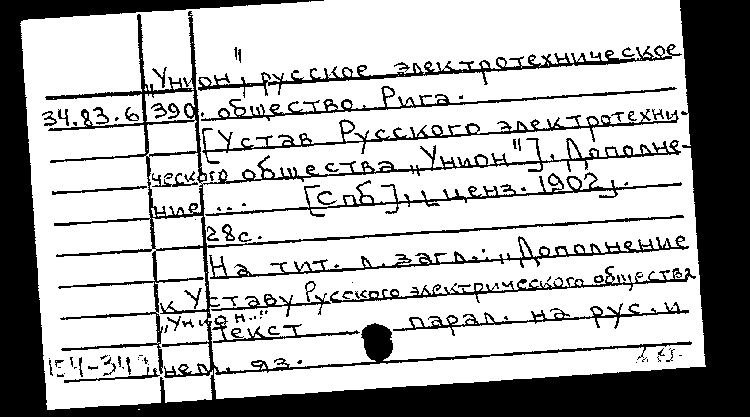 „Унион", русское электротехническое
34.83.6.390. общество. Рига.
[Устав Русского электротехни-
ческого общества „Унион"]. Дополне-
ние ... [Спб.], ценз. 1902.
28с.
На тит. л. загл.: „Дополнение
к Уставу Русского электрического общества
„Унион.."
Текст парал. на рус. и
нем. яз.